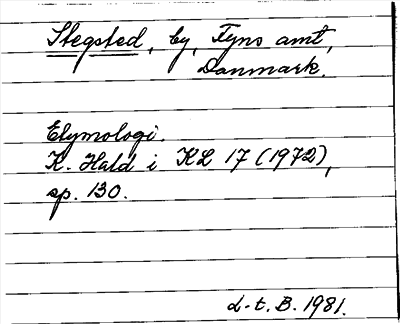 Stegsted, by, Fyns amt,
Danmark.
Etymologi.
K. Hald i KL 17 (1972),
sp. 130.
L-t. B. 1981.